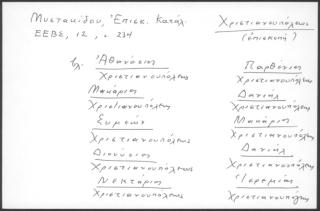 Μυστακίδου, Ἐπισκ. Κατάλ.
ΕΕΒΣ, 12, σ. 234
Χριστιανουπόλεως
(ἐπισκοπή)
βλ. Ἀθανάσιος
Χριστιανουπόλεως
Μακάριος
Χριστιανουπόλεως
Συμεών
Χριστιανουπόλεως
Διονύσιος
Χριστιανουπόλεως
Νεκτάριος
Χριστιανουπόλεως
Παρθένιος
Χριστιανουπόλεως
Δανιήλ
Χριστιανουπόλεως
Μακάριος
Χριστιανουπόλεως
Δανιήλ
Χριστιανουπόλεως
Ἱερεμίας
Χριστιανουπόλεως